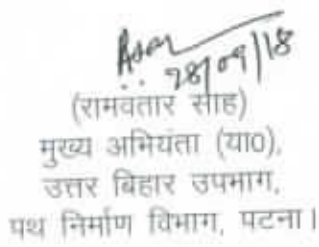 28/09/18
(रामवतार साह)
मुख्य अभियंता (या0),
उत्तर बिहार उपभाग,
पथ निर्माण विभाग, पटना।